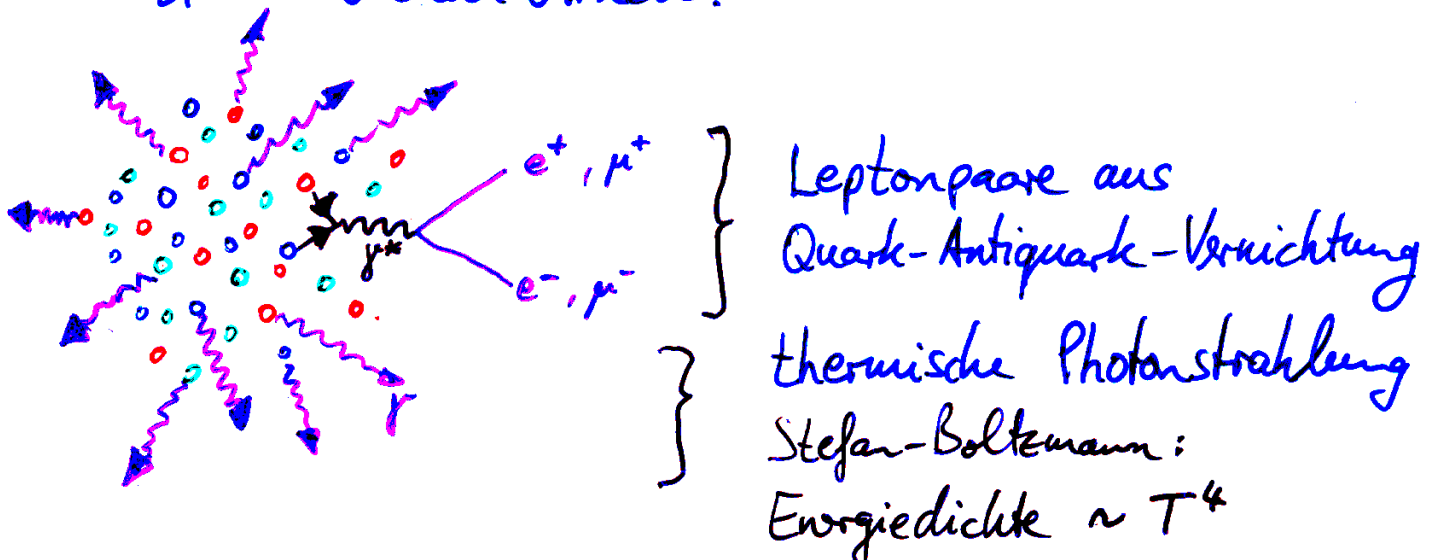 e⁺, μ⁺
γ*
e⁻, μ⁻
γ
Leptonpaare aus
Quark-Antiquark-Vernichtung
thermische Photonstrahlung
Stefan-Boltzmann:
Energiedichte ~ T⁴